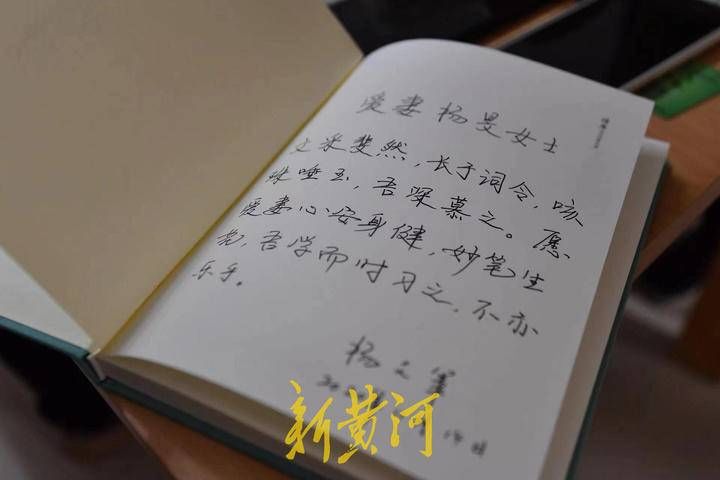 爱妻杨旻女士
文采斐然，长于词令，咳
珠唾玉，吾深慕之。愿
爱妻心安身健，妙笔生
花，吾学而时习之，不亦
乐乎。
杨文
日
新黄河